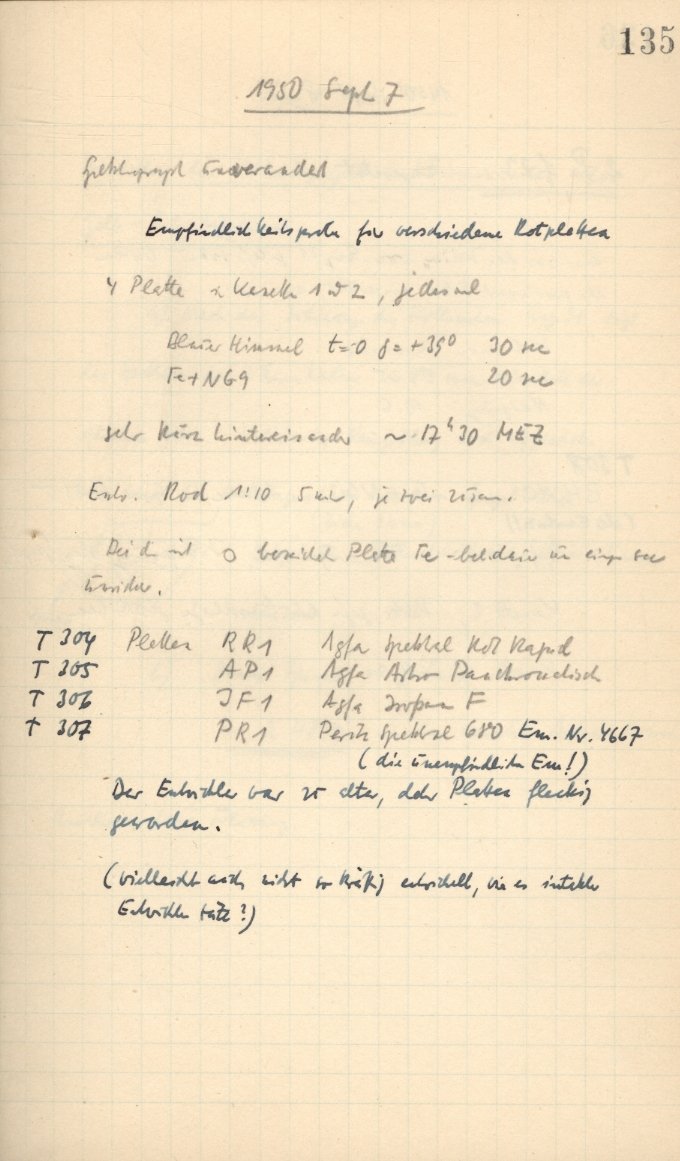 135
1950 Sept 7
Spektrograph unverändert
Empfindlichkeitsprobe für verschiedene Rotplatten
4 Platten in Kasette 1 u 2, jedesmal
Blauer Himmel t=0 δ=+39° 30 sec
Fe+NG9 20 sec
sehr kurz hintereinander ~ 17ʰ30 MEZ
Entw. Rod 1:10 5 min, je zwei zusam.
Bei der mit O bezeichn Platte Fe-belichtn um einige sec
T 304 Platten RR1 Agfa Spektral Rot Rapid
T 305 AP1 Agfa Astro Panchromatisch
T 306 JF1 Agfa Isopan F
T 307 PR1 Perutz Spektral 680 Em. Nr. 4667
(die unempfindliche Em!)
Der Entwickler war zu alter, daher Platten fleckig
geworden.
(vielleicht auch nicht so kräftig entwickelt, wie es intakter
Entwickler täte?)